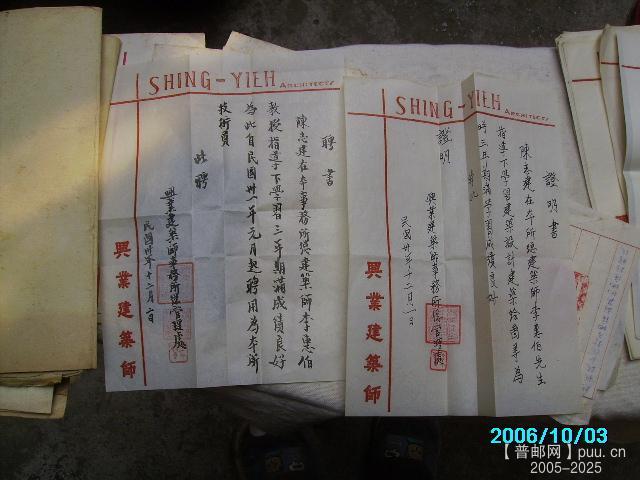 SHING-YIEH ARCHITECTS
聘書
陳志建在本事務所總建築師李惠伯
教授指導下學習三年期滿成績良好
為此自民國卅一年元月起聘用為本所
技術員
此聘
興業建築師事務所總管理處
民國卅年十二月一日
興業建築師
SHING-YIEH ARCHITECTS
證明書
陳志建在本所總建築師李惠伯先生
指導下學習建築設計建築繪圖等為
時三年期滿學習成績良好
此
證明
興業建築師事務所總管理處
民國卅年十二月一日
興業建築師
2006/10/03
【普邮网】puu.cn
2005-2025